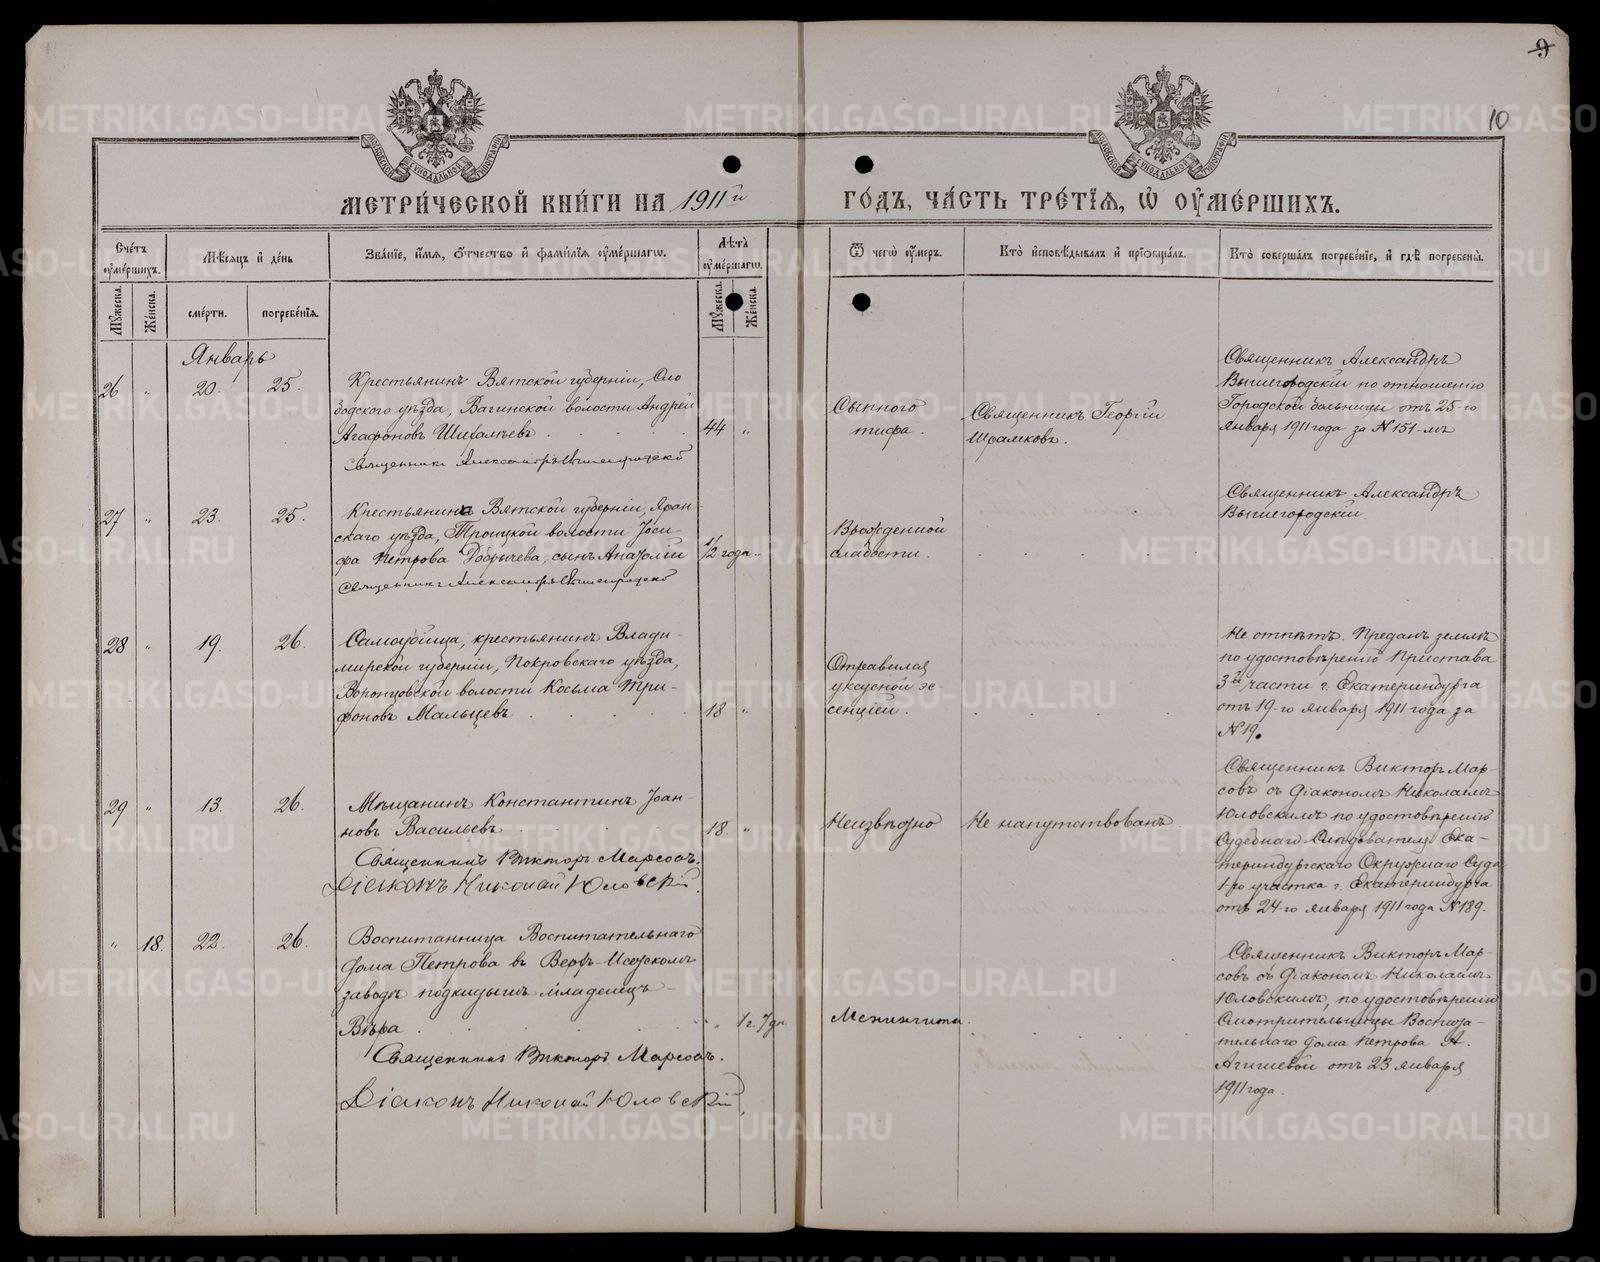 9
10
МОСКОВСКОЙ СѴНОДАЛЬНОЙ ТИПОГРАФІИ
МОСКОВСКОЙ СѴНОДАЛЬНОЙ ТИПОГРАФІИ
МЕТРИ́ЧЕСКОЙ КНИ́ГИ НА 1911й ГО́ДЪ, ЧА́СТЬ ТРЕ́ТЇѦ, Ѡ ОУМЕ́РШИХЪ.
Сче́тъ оуме́ршихъ.
Мѣ́сѧцъ и҆ де́нь
Зва́нїе, и҆́мѧ, ѻ҆́тчество и҆ фами́лїѧ оуме́ршагѡ.
Лѣ́та оуме́ршагѡ.
Ѿ чегѡ̀ оу́меръ.
Кто̀ и҆сповѣ́дывалъ и҆ прїѻбща́лъ.
Кто̀ соверша́лъ погребе́нїе, и҆ гдѣ̀ погребены̀.
Мꙋ́жеска.
Же́нска.
сме́рти.
погребе́нїѧ.
Мꙋ́жеска.
Же́нска.
Январь
26 " 20. 25.
Крестьянинъ Вятской губерніи, Сло
бодского уѣзда, Вагинской волости Андрей
Агафоновъ Шихалѣевъ . . . . 44 "
Священникъ Александръ Вышегородскій
Сыпного
тифа.
Священникъ Георгій
Шрамковъ.
Священникъ Александръ
Вышегородскій по отношенію
Городской больницы отъ 25-го
января 1911 года за № 151-мъ
27 " 23. 25.
Крестьянина Вятской губерніи, Яран-
скаго уѣзда, Троицкой волости Іоси-
фа Петрова Добрычева, сынъ Анатолій 1/2 года "
Священникъ Александръ Вышегородскій
Врожденной
слабости. . . . .
Священникъ Александръ
Вышегородскій.
28 " 19. 26.
Самоубійца, крестьянинъ Влади-
мирской губерніи, Покровскаго уѣзда,
Воронцовской волости Косьма Три-
фоновъ Мальцевъ . . . . 18 "
Отравился
уксусной эс-
сенціей. . . . .
Не отпѣтъ. Преданъ землѣ
по удостовѣренію Пристава
3й части г. Екатеринбурга
отъ 19-го января 1911 года за
№ 19.
29 " 13. 26.
Мѣщанинъ Константинъ Іоан-
новъ Васильевъ . . . . 18. "
Священникъ Викторъ Марсовъ.
Діаконъ Николай Юловскій.
Неизвѣстно
Не напутствованъ
Священникъ Викторъ Мар-
совъ съ діакономъ Николаемъ
Юловскимъ по удостовѣренію
Судебнаго Слѣдователя Ека-
теринбургскаго Окружнаго Суда
1-го участка г. Екатеринбурга
отъ 24-го января 1911 года № 189.
" 18. 22. 26.
Воспитанница Воспитательнаго
дома Петрова въ Верхъ-Исетскомъ
заводѣ подкидышъ младенецъ -
Вѣра . . . . " 1 г. 7 дн
Священникъ Викторъ Марсовъ.
Діаконъ Николай Юловскій.
Менингита. . . .
Священникъ Викторъ Мар-
совъ съ діакономъ Николаемъ
Юловскимъ, по удостовѣренію
Смотрительницы Воспита-
тельнаго дома Петрова А.
Агишевой отъ 23 января
1911 года.